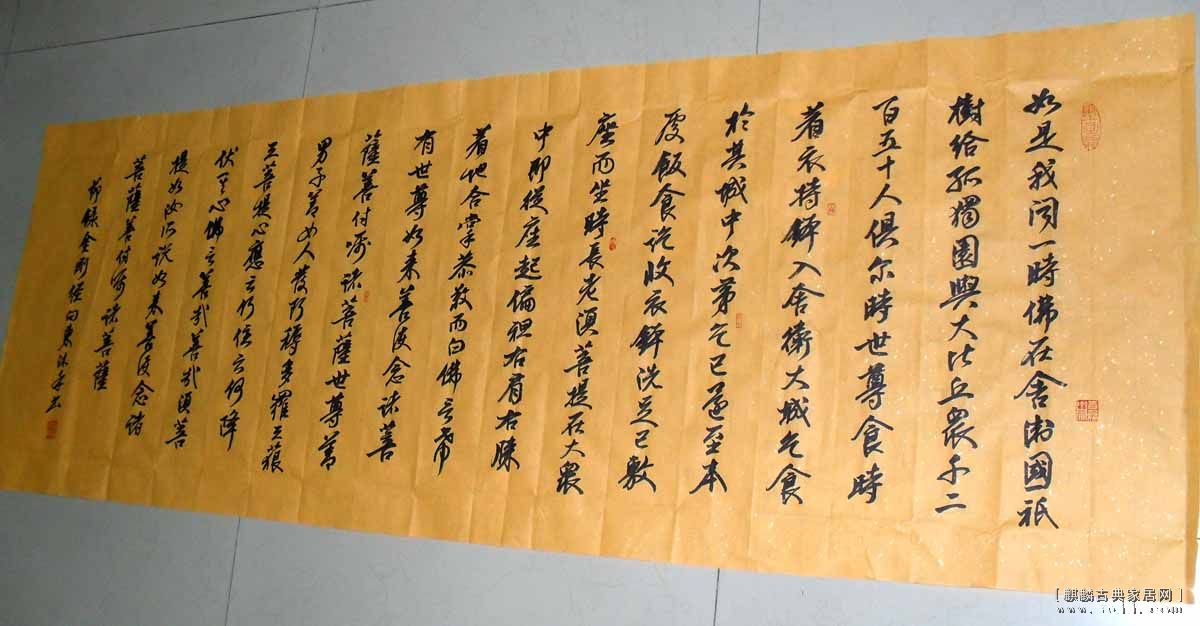 如是我闻一時佛在舍衛國祇
樹給孤獨園與大比丘衆千二
百五十人俱尔時世尊食時
着衣持鉢入舍衛大城乞食
於其城中次第乞已還至本
處飯食訖收衣鉢洗足已敷
座而坐時長老須菩提在大衆
中即從座起偏袒右肩右膝
着地合掌恭敬而白佛言希
有世尊如来善護念諸菩
薩善付嘱諸菩薩世尊善
男子善女人發阿耨多羅三藐
三菩提心應云何住云何降
伏其心佛言善哉善哉須菩
提如汝所说如来善護念諸
菩薩善付嘱諸菩薩
節録金剛經向東沐手書
[麒麟古典家居网]